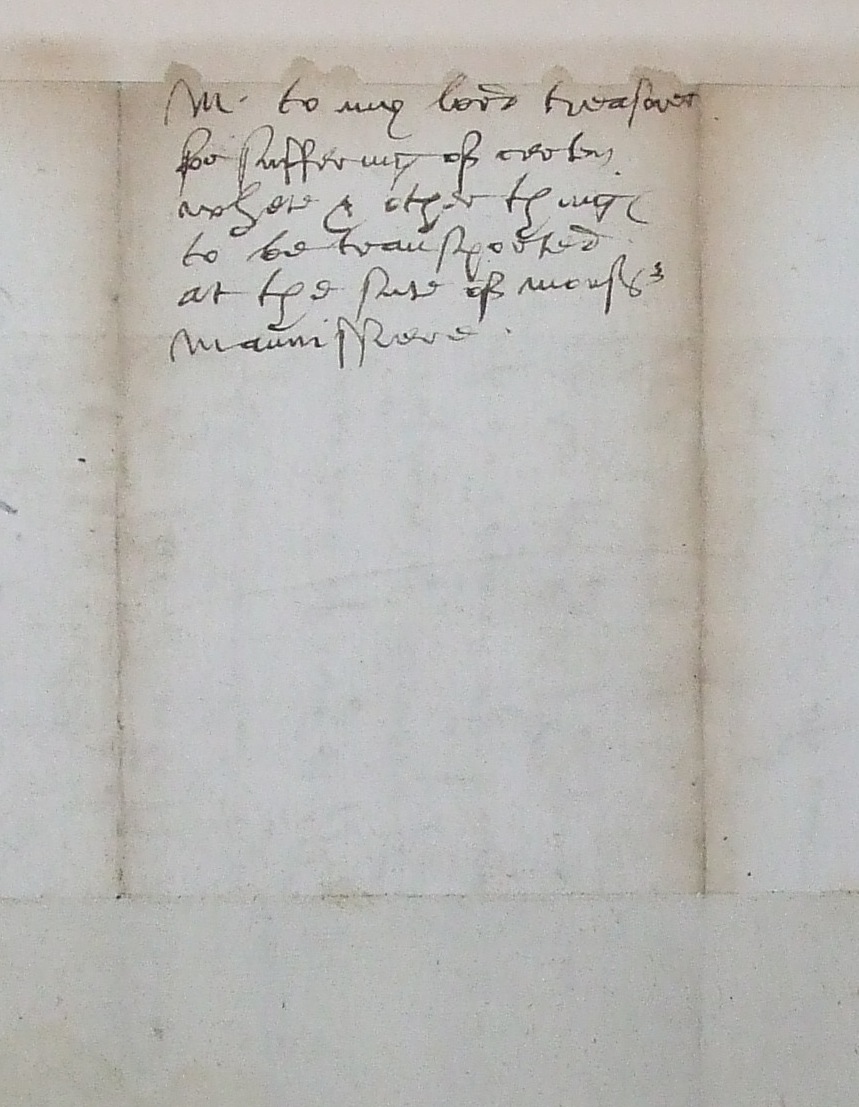 M. to my lord treasorer
for suffering of certen
whete & other things
to be transported
at the sute of monsr
Mauvissiere.